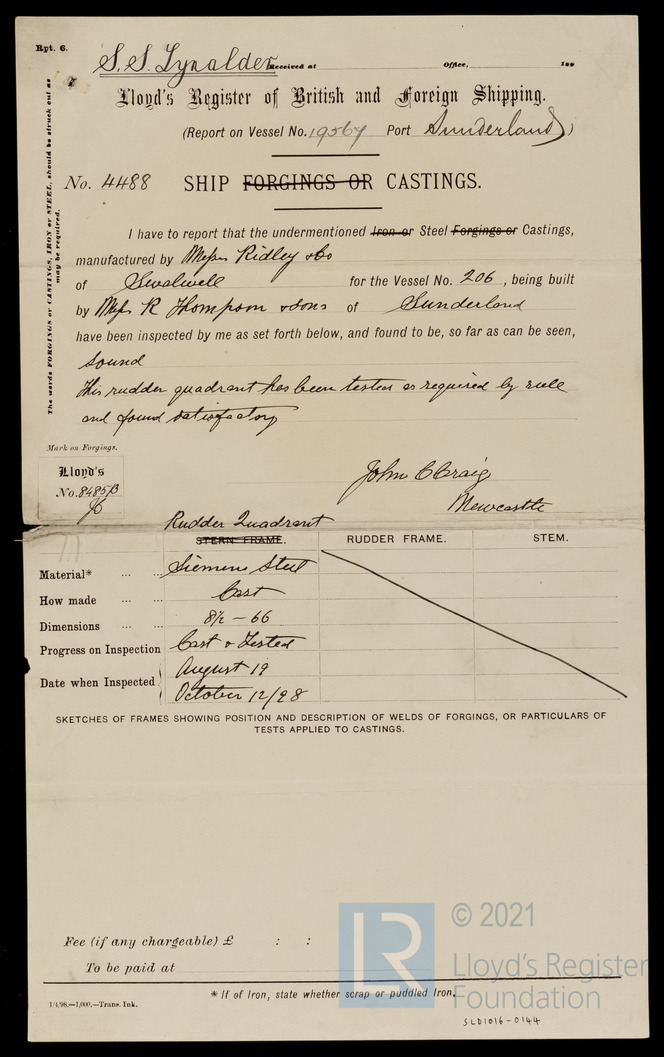 Rpt. 6.
S. S. Tynalder Received at Office, 189
Lloyd's Register of British and Foreign Shipping.
(Report on Vessel No. 19567 Port Sunderland)
No. 4488 SHIP FORGINGS OR CASTINGS.
The words FORGINGS or CASTINGS, IRON or STEEL, should be struck out as
may be required.
I have to report that the undermentioned Iron or Steel Forgings or Castings,
manufactured by Messrs Ridley & Co
of Swalwell for the Vessel No. 206, being built
by Messrs R Thompson & Sons of Sunderland
have been inspected by me as set forth below, and found to be, so far as can be seen,
sound
This rudder quadrant has been tested as required by rule
and found satisfactory
Mark on Forgings.
Lloyd's
No. 8485B
John C Craig
Newcastle
Rudder Quadrant
STERN FRAME. RUDDER FRAME. STEM.
Material* ... ... Siemens Steel
How made ... ... Cast
Dimensions ... ... 8½ - 66
Progress on Inspection Cast & Tested
Date when Inspected August 19
October 12/98
SKETCHES OF FRAMES SHOWING POSITION AND DESCRIPTION OF WELDS OF FORGINGS, OR PARTICULARS OF
TESTS APPLIED TO CASTINGS.
Fee (if any chargeable) £ : :
To be paid at
* If of Iron, state whether scrap or puddled Iron.
1/4/98.—1,000.—Trans. Ink.
SLD1016-0144
LR
© 2021
Lloyd's Register
Foundation